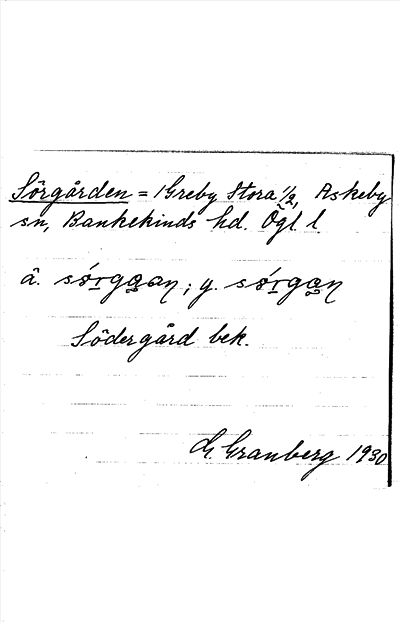 Sörgården = Greby Stora 1/2, Askeby
sn, Bankekinds hd. Ögl l.
ä. ; y.
Södergård bek.
G. Granberg 1930